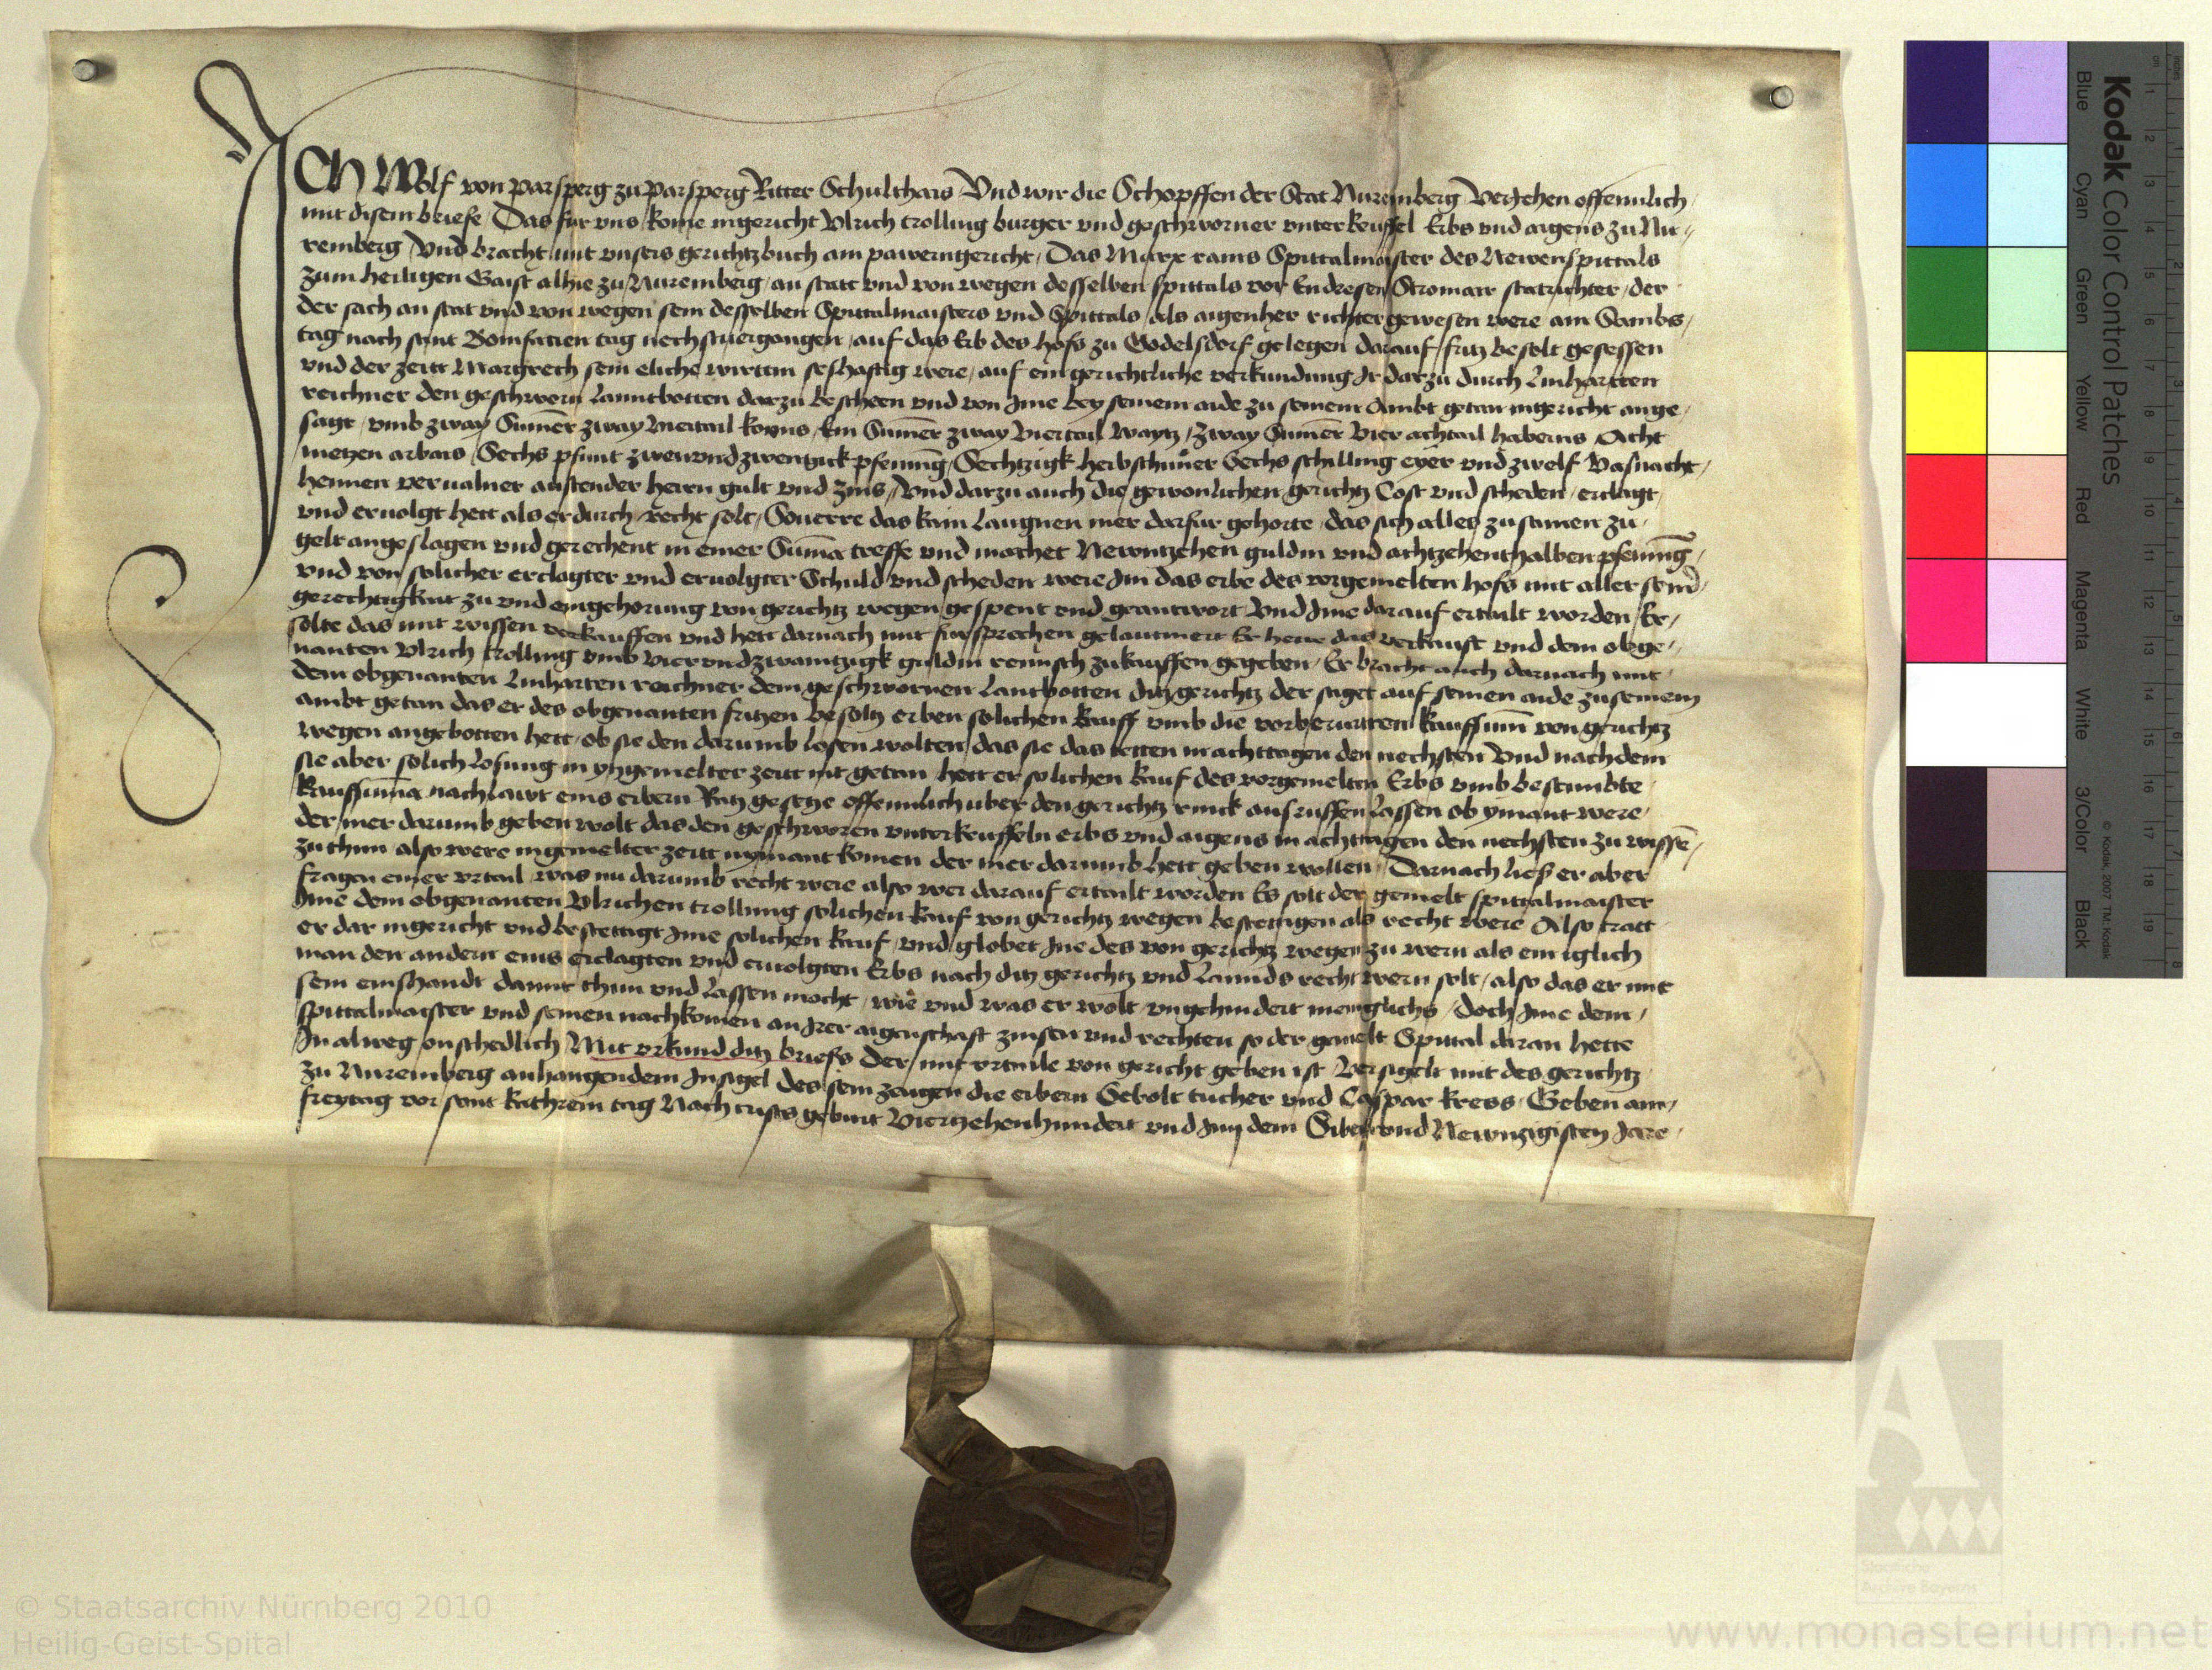 ICH Wolf von Parsperg zu Parsperg Ritter Schulthais Vnd wir die Schopffen der Stat Nuremberg Verjehen offennlich
mit disem briefe Das fur vns kome ingericht Vlrich trolling burger vnd geschworner vnterkeuffel Erbs vnd aigens zu Nu-
remberg Vnd bracht mit vnsers gerichtzbuch am pawerngericht Das Marx rams Spittalmaister des Newenspittals
zum heiligen Gaist alhie zu Nuremberg an statt vnd von wegen desselben spittals vor Endresen Stromair statrichter der
der sach an stat vnd von wegen sein desselben Spittalmaisters vnd Spittals als aigenher richter gewesen were am Sambs-
tag nach sant Bonifacien tag nechstuergangen auf das Erb des hofs zu Godelsdorf gelegen darauf fritz besolt gesessen
vnd der zeitt Margreth sein eliche wirttin seshafftig were auf ein gerichtliche verkundung Ir darzu durch Linhartten
reichner den geschworn lanntbotten darzu bescheen vnd von Ime bey seinem aide zu seinem Ambt getan ingericht ange-
sagt vmb zway Sumer zway viertail korns Ein Sumer zway viertail waytz zway Sumer vier achtail haberns Acht
metzen arbais Sechs pfunt zwenvndzwentzick pfenning Sechtzigk herbsthuner Sechs schilling eyer vnd zwelf Vasnacht-
hennen veruallner austender herrn gult vnd zins Vnd darzu auch die gewonlichen gerichtz Cost vnd scheden erclagt
vnd eruolgt hett als er durch recht solt Souerre das kain laugnen mer darfur gehorte das sich alles zusamen zu
gelt angeslagen vnd gerechent in einer Suma treffe vnd mochet Newntzehen guldin vnd achtzehenthalben pfenning
vnd von solicher erclagter vnd eruolgter Schuld vnd scheden were Im das erbe des vorgemelten hofs mit aller seinr
gerechtigkait zu vnd eingehorung von gerichtz wegen gespent vnd geantwort Vnd Ime darauf ertailt worden Er
solte das mit wissen verkauffen vnd hett darnach mit fursprechen gelautmert Er hette das verkauft vnd dem obge-
nanten Vlrich trolling vmb vier vndzwaintzigk guldin reinisch zukauffen gegeben Er bracht auch darnach mit
dem obgenanten Linharten reichner dem geschwornen lantbotten ditz gerichtz der saget auf seinen aide zu seinem
ambt getan das er des obgenanten fritzen besoltz erben solichen kauff vmb die vorberurtten kauffsum von gerichtz
wegen angebotten hett ob sie den darumb losen wolten das sie das tetten in achttagen den nechsten Vnd nachdem
sie aber solich losung in yzgemelter zeitt nit getan hett er solichen kauf des vorgemelten Erbs vmb bestimbte
kauffsuma nach lawt eins erbern Ratz gesetze offennlich uber den gerichtz rinck ausruffen lassen ob ymant were
der mer darumb geben wolt das den geschworen vnterkeuffeln erbs vnd aigens in achttagen den nechsten zu wissen
zuthun also were ingemelter zeitt nymant komen der mer darumb hett geben wollen Darnach lies er aber
fragen einer vrtail was nu darumb recht were also wer darauf ertailt worden Es solt der gemelt spittalmaister
Ime dem obgenanten Vlrichen trolling solichen kauf von gerichtz wegen bestettigen als recht were Also tratt
er dar ingericht vnd bestettigt Ime solichen kauf vnd globet Ine des von gerichtz wegen zu wern als ein iglich
man den andern eins erclagten vnd eruolgten Erbs nach ditz gerichtz vnd Lannds recht wern solt also das er mit
sein einshandt damit thun vnd lassen mocht wie vnd was er wolt vngehindert meniglichs Doch Ime dem
spittalmaister vnd seinen nachkomen an Irer aigenschaft zinsen vnd rechten so der gemelt Spittal daran hette
In alweg onschedlich Mit vrkund ditz briefs der mit vrtaile von gericht geben ist Versigelt mit des gerichtz
zu Nuremberg anhangendem Insigel des sein zeugen die erbern Sebolt tucher vnd Caspar kress Geben am
freytag vor sant kathrein tag Nach cristi geburt Viertzehenhundert vnd Inn dem Siben vnd Newnzigisten Jare
Kodak Color Control Patches
Blue Cyan Green Yellow Red Magenta White 3/Color Black
© Kodak, 2007 TM: Kodak
© Staatsarchiv Nürnberg 2010
Heilig-Geist-Spital
Staatliche
Archive Bayerns
www.monasterium.net